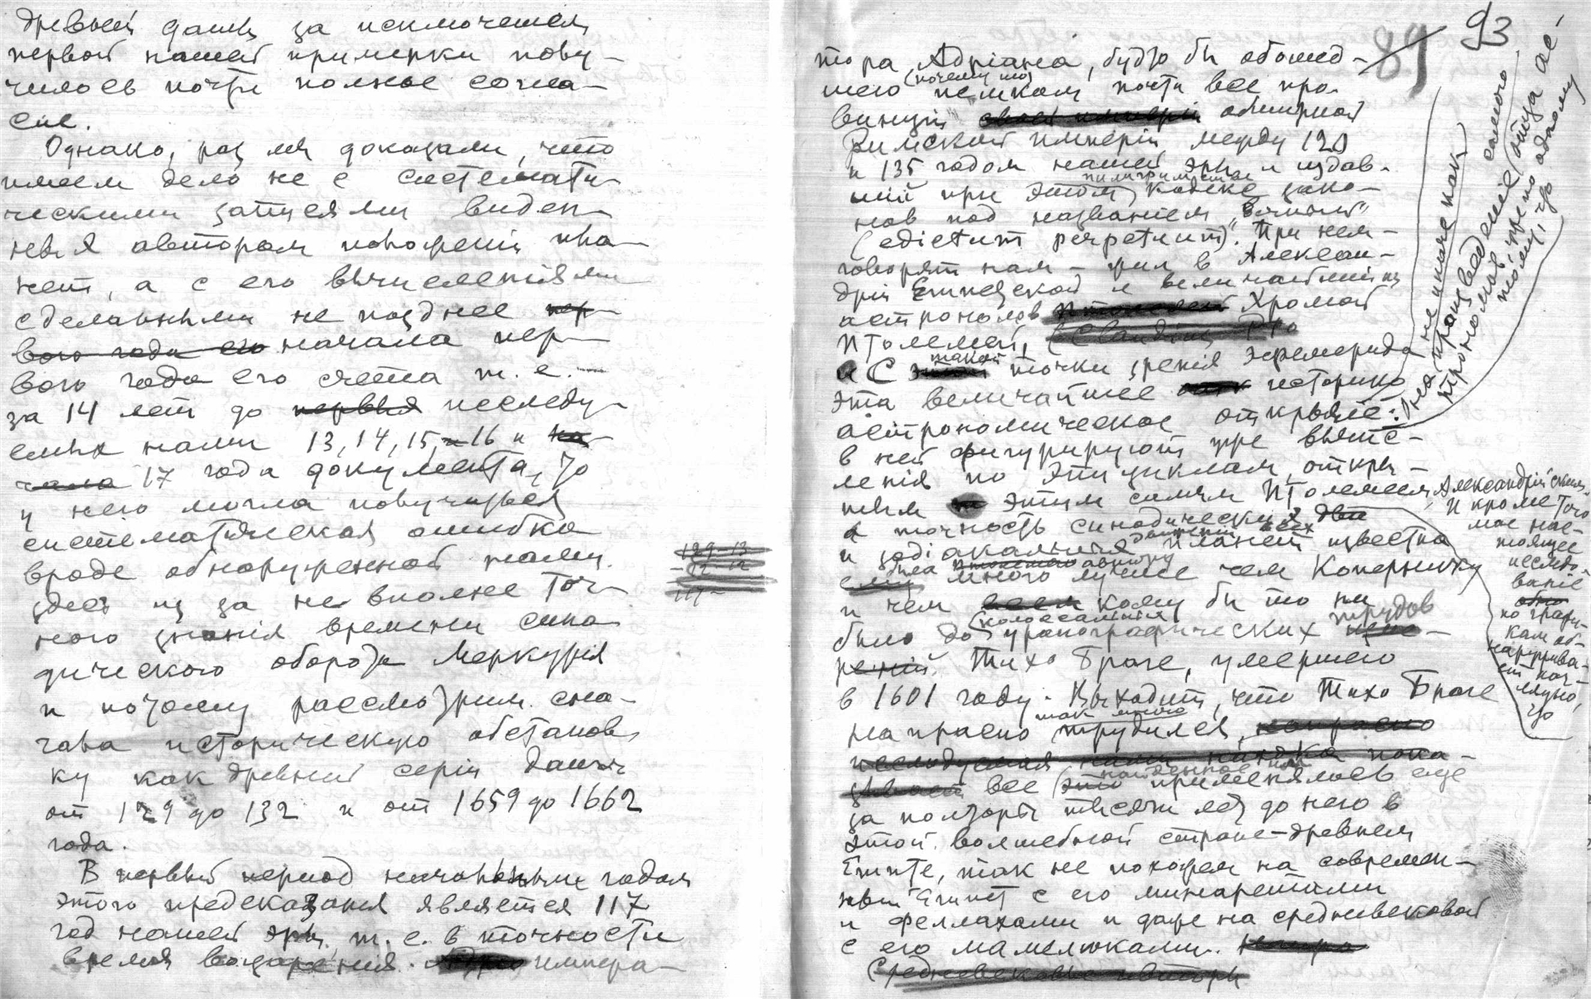 древней даты за исключением
первой нашей примерки полу-
чилось почти полное согла-
сие.
Однако, раз мы доказали, что
имеем дело не с система-
ческими записями виден-
ных автором положений пла-
нет, а с его вычислениями
сделанными не позднее пер-
вого года его начала пер-
вого года его счета т. е.
за 14 лет до первых исследу-
емых нами 13, 14, 15, 16 и на-
чала 17 года документа, то
у него могла получиться
систематическая ошибка
вроде обнаруженной нами
здесь из за не вполне точ-
ного знанія времени сино-
дического оборота Меркурія
и потому рассмотрим сна-
чала историческую обстанов-
ку как древней серіи даты
от 129 до 132 и от 1659 до 1662
года.
В первый период начальным годом
этого предсказания является 117
год нашей эры, т. е. в точности
время воцарения импера-
129-13
93
89
тора Адріана, будто бы обошед-
шего (почему то) пешком почти все про-
винціи обширной
Римской имперіи между 120
и 135 годом нашей эры и издав-
ший при этом пилигримстве кодекс зако-
нов под названіем „Вечный"
(edictum perpetuum). При нем-
говорят нам - жил в Алексан-
дріи Египетской и величайший из
астрономов Хромой
Птолемей, (Claudius Pto
С такой точки зренія эфемерида
эта величайшее историко
астрономическое открытіе:
в ней фигурируют уже вычис-
ленія по эпициклам, откры-
тым этим самым Птолемеем,
а точность синодических
и зодіакальных движений всех планет известна
была автору много лучше чем Копернику
и чем кому бы то ни
было до колоссальных уранографических трудов
Тихо Браге, умершего
в 1601 году. Выходит, что Тихо Браге
напрасно так много трудился,
все найденное им применялось еще
за полторы тысячи лет до него в
этой волшебной стране-древнем
Египте, так не похожем на современ-
ный Египет с его минаретами
и феллахами и даже на средневековой
с его мамелюками.
Средневековые авторы
на не иначе как
на произведеніе самого
отца ас-
трономов, но
потому, что
Александрійским,
И кроме того
мое нас-
тоящее
исследо-
ваніе
по графи-
кам об-
наружива-
ет наг-
лядно,
что